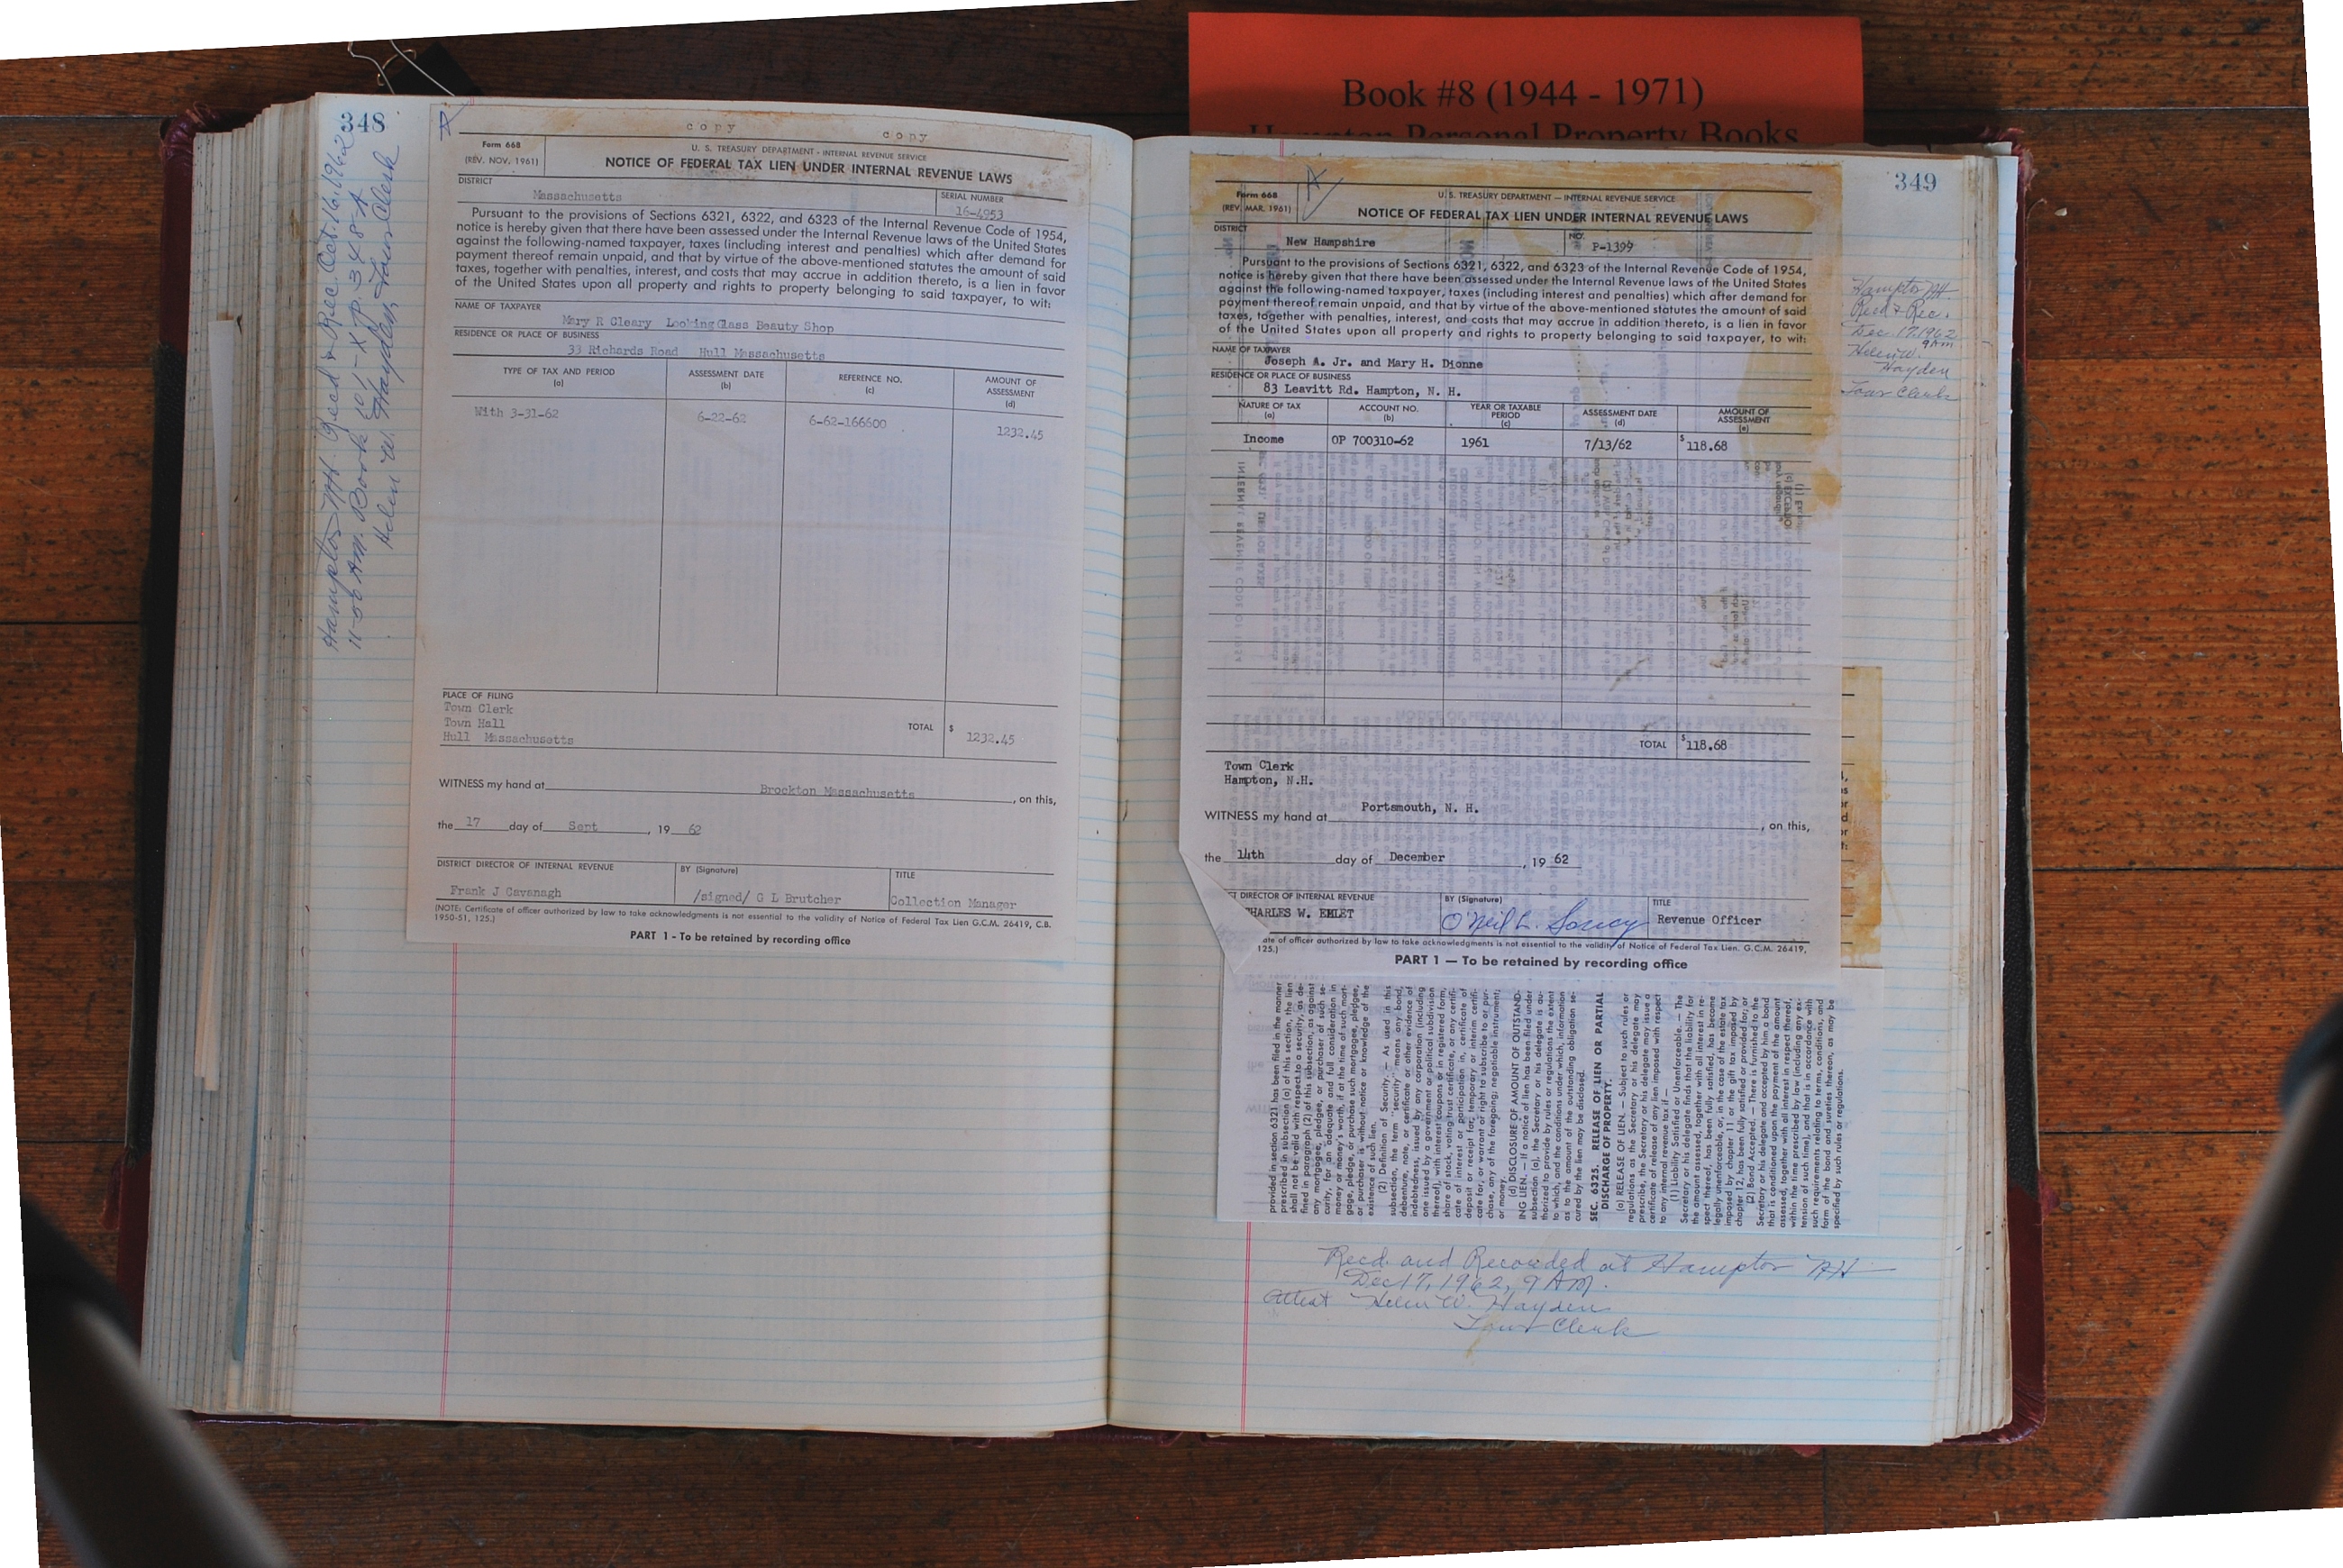 Book #8 (1944 - 1971)
Hampton Personal Property Books
348
Hampton NH. Recd & Rec. Oct. 16, 1962
11-00 AM. Book 10-X p. 348-A
Helen W. Hayden Town Clerk
copy copy
Form 668
(REV. NOV. 1961)
U. S. TREASURY DEPARTMENT - INTERNAL REVENUE SERVICE
NOTICE OF FEDERAL TAX LIEN UNDER INTERNAL REVENUE LAWS
DISTRICT
Massachusetts
SERIAL NUMBER
16-4953
Pursuant to the provisions of Sections 6321, 6322, and 6323 of the Internal Revenue Code of 1954,
notice is hereby given that there have been assessed under the Internal Revenue laws of the United States
against the following-named taxpayer, taxes (including interest and penalties) which after demand for
payment thereof remain unpaid, and that by virtue of the above-mentioned statutes the amount of said
taxes, together with penalties, interest, and costs that may accrue in addition thereto, is a lien in favor
of the United States upon all property and rights to property belonging to said taxpayer, to wit:
NAME OF TAXPAYER
Mary R Cleary LookingGlass Beauty Shop
RESIDENCE OR PLACE OF BUSINESS
33 Richards Road Hull Massachusetts
TYPE OF TAX AND PERIOD (a) ASSESSMENT DATE (b) REFERENCE NO. (c) AMOUNT OF ASSESSMENT (d)
With 3-31-62 6-22-62 6-62-166600 1232.45
PLACE OF FILING
Town Clerk
Town Hall
Hull Massachusetts
TOTAL $ 1232.45
WITNESS my hand at Brockton Massachusetts, on this,
the 17 day of Sept, 19 62
DISTRICT DIRECTOR OF INTERNAL REVENUE BY (Signature) TITLE
Frank J Cavanagh /signed/ G L Brutcher Collection Manager
(NOTE: Certificate of officer authorized by law to take acknowledgments is not essential to the validity of Notice of Federal Tax Lien G.C.M. 26419, C.B.
1950-51, 125.)
PART 1 - To be retained by recording office
349
Form 668
(REV. MAR. 1961)
U. S. TREASURY DEPARTMENT — INTERNAL REVENUE SERVICE
NOTICE OF FEDERAL TAX LIEN UNDER INTERNAL REVENUE LAWS
DISTRICT
New Hampshire
NO.
P-1399
Pursuant to the provisions of Sections 6321, 6322, and 6323 of the Internal Revenue Code of 1954,
notice is hereby given that there have been assessed under the Internal Revenue laws of the United States
against the following-named taxpayer, taxes (including interest and penalties) which after demand for
payment thereof remain unpaid, and that by virtue of the above-mentioned statutes the amount of said
taxes, together with penalties, interest, and costs that may accrue in addition thereto, is a lien in favor
of the United States upon all property and rights to property belonging to said taxpayer, to wit:
NAME OF TAXPAYER
Joseph A. Jr. and Mary H. Dionne
RESIDENCE OR PLACE OF BUSINESS
83 Leavitt Rd. Hampton, N. H.
NATURE OF TAX (a) ACCOUNT NO. (b) YEAR OR TAXABLE PERIOD (c) ASSESSMENT DATE (d) AMOUNT OF ASSESSMENT (e)
Income OP 700310-62 1961 7/13/62 $118.68
TOTAL $118.68
Town Clerk
Hampton, N.H.
WITNESS my hand at Portsmouth, N. H., on this,
the 14th day of December, 19 62
CT DIRECTOR OF INTERNAL REVENUE BY (Signature) TITLE
HARLES W. EMLET O'Neil L. Soucy Revenue Officer
ate of officer authorized by law to take acknowledgments is not essential to the validity of Notice of Federal Tax Lien. G.C.M. 26419,
125.)
PART 1 — To be retained by recording office
Hampton NH.
Recd & Rec.
Dec. 17, 1962
9 AM
Helen W.
Hayden
Town Clerk
provided in section 6321 has been filed in the manner
prescribed in subsection (a) of this section, the lien
shall not be valid with respect to a security, as de-
fined in paragraph (2) of this subsection, as against
any mortgagee, pledgee, or purchaser of such se-
curity, for an adequate and full consideration in
money or money's worth, if at the time of such mort-
gage, pledge, or purchase such mortgagee, pledgee,
or purchaser is without notice or knowledge of the
existence of such lien.
(2) Definition of Security. — As used in this
subsection, the term "security" means any bond,
debenture, note, or certificate or other evidence of
indebtedness, issued by any corporation (including
one issued by a government or political subdivision
thereof), with interest coupons or in registered form,
share of stock, voting trust certificate, or any certifi-
cate of interest or participation in, certificate of
deposit or receipt for, temporary or interim certifi-
cate for, or warrant or right to subscribe to or pur-
chase, any of the foregoing; negotiable instrument;
or money.
(d) DISCLOSURE OF AMOUNT OF OUTSTAND-
ING LIEN. — If a notice of lien has been filed under
subsection (a), the Secretary or his delegate is au-
thorized to provide by rules or regulations the extent
to which, and the conditions under which, information
as to the amount of the outstanding obligation se-
cured by the lien may be disclosed.
SEC. 6325. RELEASE OF LIEN OR PARTIAL
DISCHARGE OF PROPERTY.
(a) RELEASE OF LIEN. — Subject to such rules or
regulations as the Secretary or his delegate may
prescribe, the Secretary or his delegate may issue a
certificate of release of any lien imposed with respect
to any internal revenue tax if —
(1) Liability Satisfied or Unenforceable. — The
Secretary or his delegate finds that the liability for
the amount assessed, together with all interest in re-
spect thereof, has been fully satisfied, has become
legally unenforceable, or, in the case of the estate tax
imposed by chapter 11 or the gift tax imposed by
chapter 12, has been fully satisfied or provided for; or
(2) Bond Accepted. — There is furnished to the
Secretary or his delegate and accepted by him a bond
that is conditioned upon the payment of the amount
assessed, together with all interest in respect thereof,
within the time prescribed by law (including any ex-
tension of such time), and that is in accordance with
such requirements relating to terms, conditions, and
form of the bond and sureties thereon, as may be
specified by such rules or regulations.
Recd. and Recorded at Hampton NH
Dec 17, 1962, 9 AM.
Attest Helen W. Hayden
Town Clerk